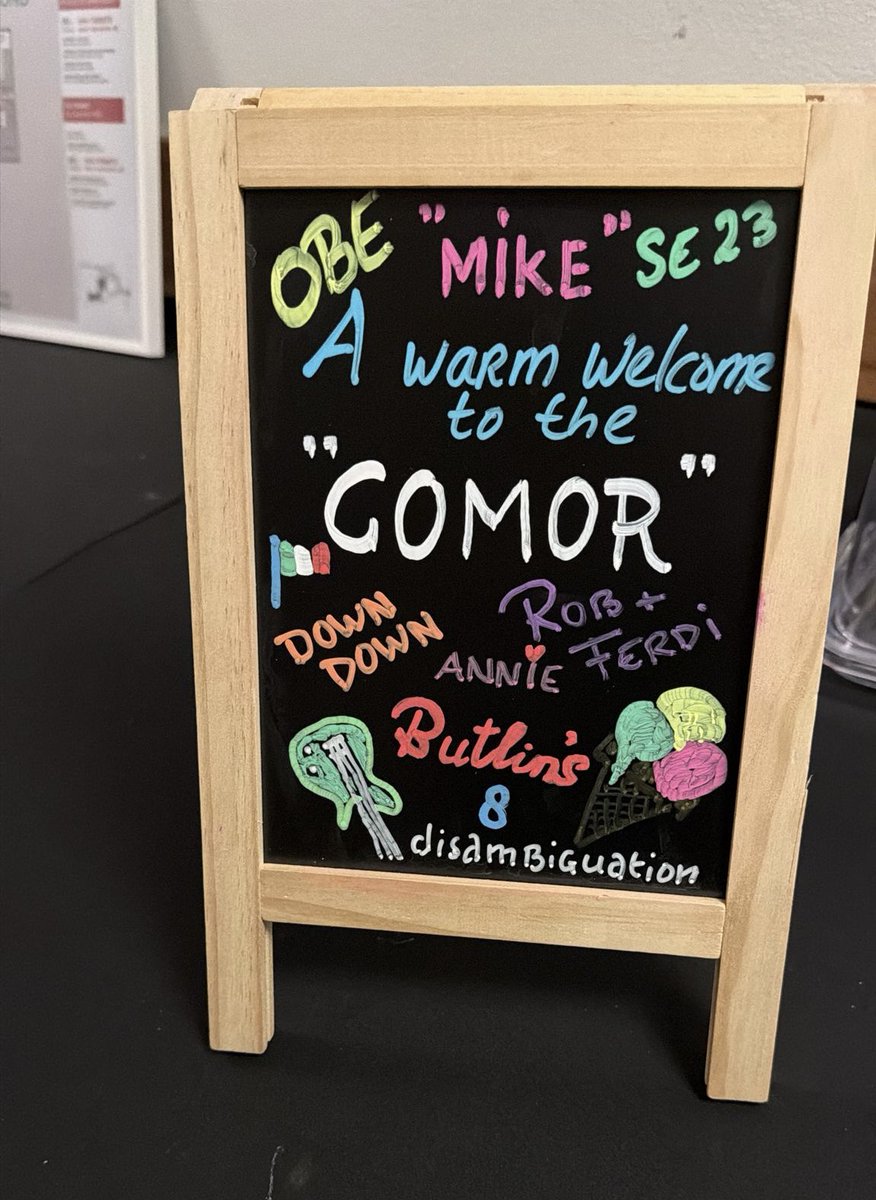 OBE "MiKE" SE 23
A WARM Welcome
to the
"GOMOR"
DOWN
DOWN
ROB +
FERDi
ANNiE
Butlin's
8
disamBiGuation